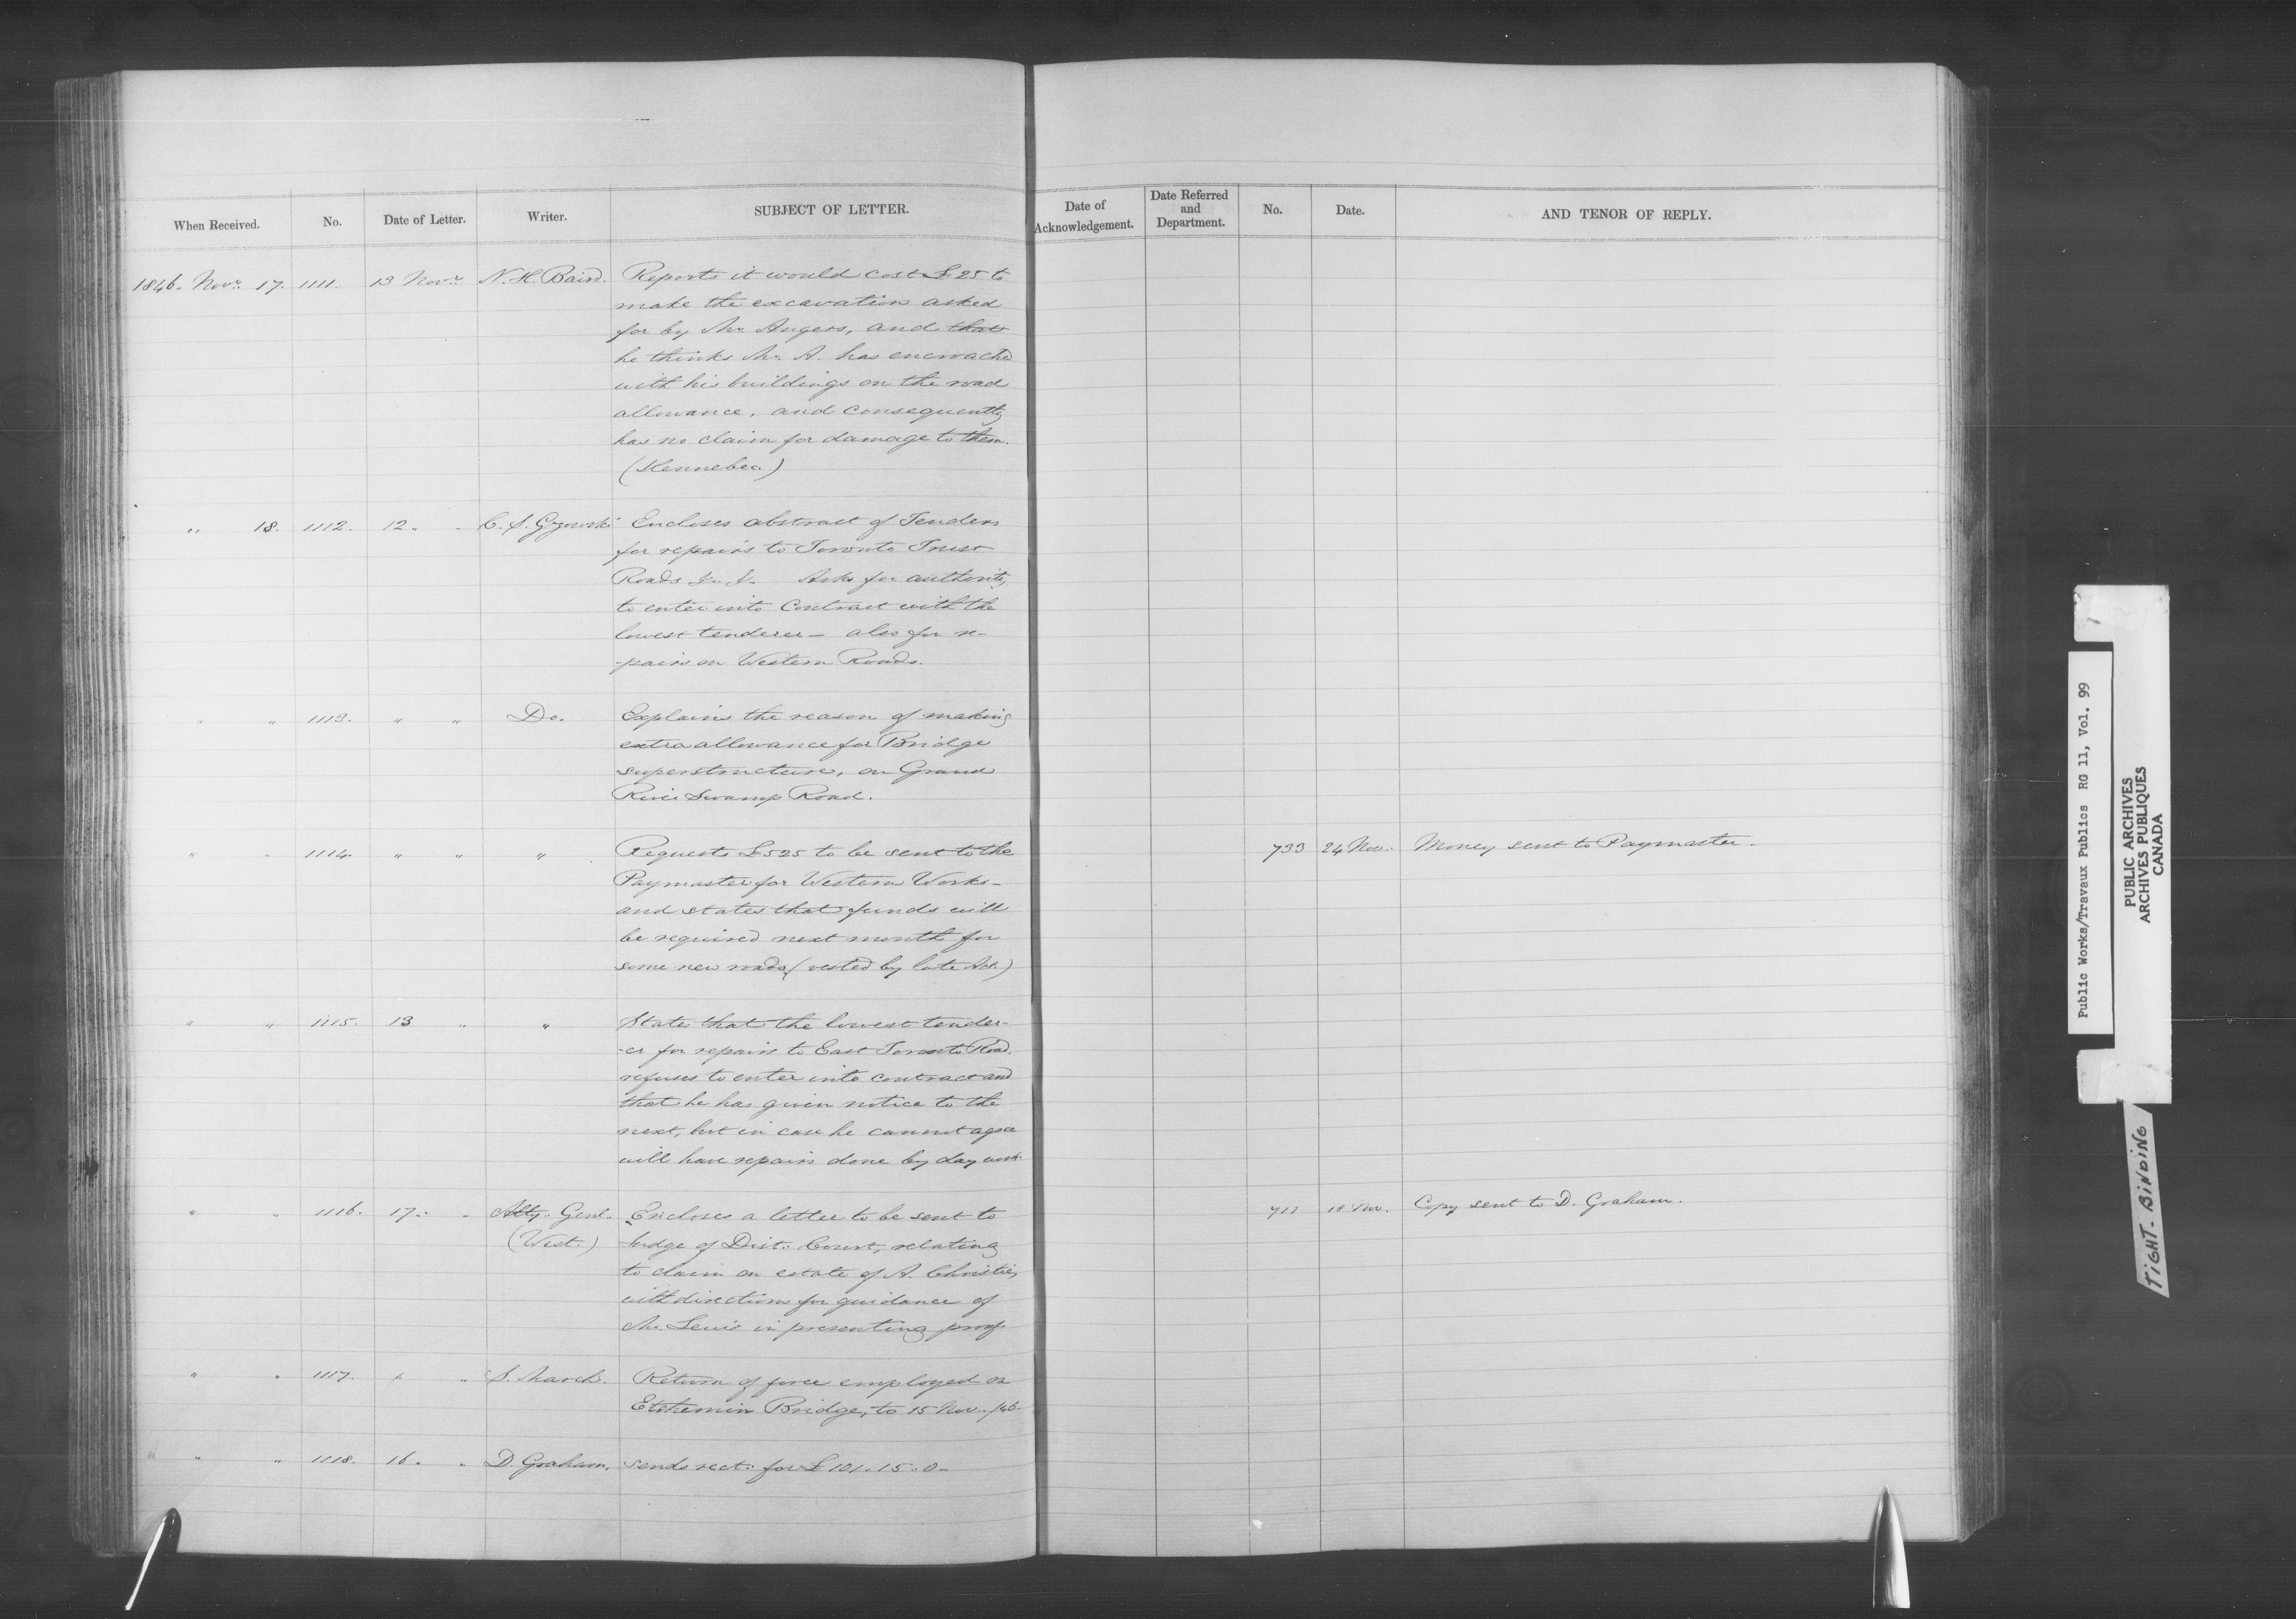 When Received. No. Date of Letter. Writer. SUBJECT OF LETTER.
1846. Novr. 17. 1111. 13 Novr. N. H. Baird. Reports it would cost £25 to
make the excavation asked
for by Mr Angers, and that
he thinks Mr. A. has encroached
with his buildings on the road
allowance, and consequently
has no claim for damage to them.
(Kennebec.)
" 18. 1112. 12 " " C. S. Gzowski Encloses abstract of Tenders
for repairs to Toronto Trust
Roads Asks for authority
to enter into Contract with the
lowest tenderer — also for re-
-pairs on Western Roads.
" " 1113. " " Do. Explains the reason of making
extra allowance for Bridge
superstructure, on Grand
River Swamp Road.
" " 1114. " " " Requests £525 to be sent to the
Paymaster for Western Works —
and states that funds will
be required next month for
some new roads (vested by late Act.)
" " 1115. 13 " " States that the lowest tender-
-er for repairs to East Toronto Road
refuses to enter into contract and
that he has given notice to the
next, but in case he cannot agree
will have repairs done by day work.
" " 1116. 17 " " Atty. Genl. Encloses a letter to be sent to
(West.) Judge of Dist. Court, relating
to claim on estate of A. Christie,
with directions for guidance of
Mr. Lewis in presenting proofs
" " 1117. " " S. March. Return of force employed on
Etchemin Bridge, to 15 Nov. /46.
" " 1118. 16 " " D. Graham. Sends rect. for £101.15.0 —
Date of Acknowledgement. Date Referred and Department. No. Date. AND TENOR OF REPLY.
733 24 Nov. Money sent to Paymaster.
18 Nov. Copy sent to D. Graham.
Public Works/Travaux Publics RG 11, Vol. 99
PUBLIC ARCHIVES
ARCHIVES PUBLIQUES
CANADA
TIGHT BINDING